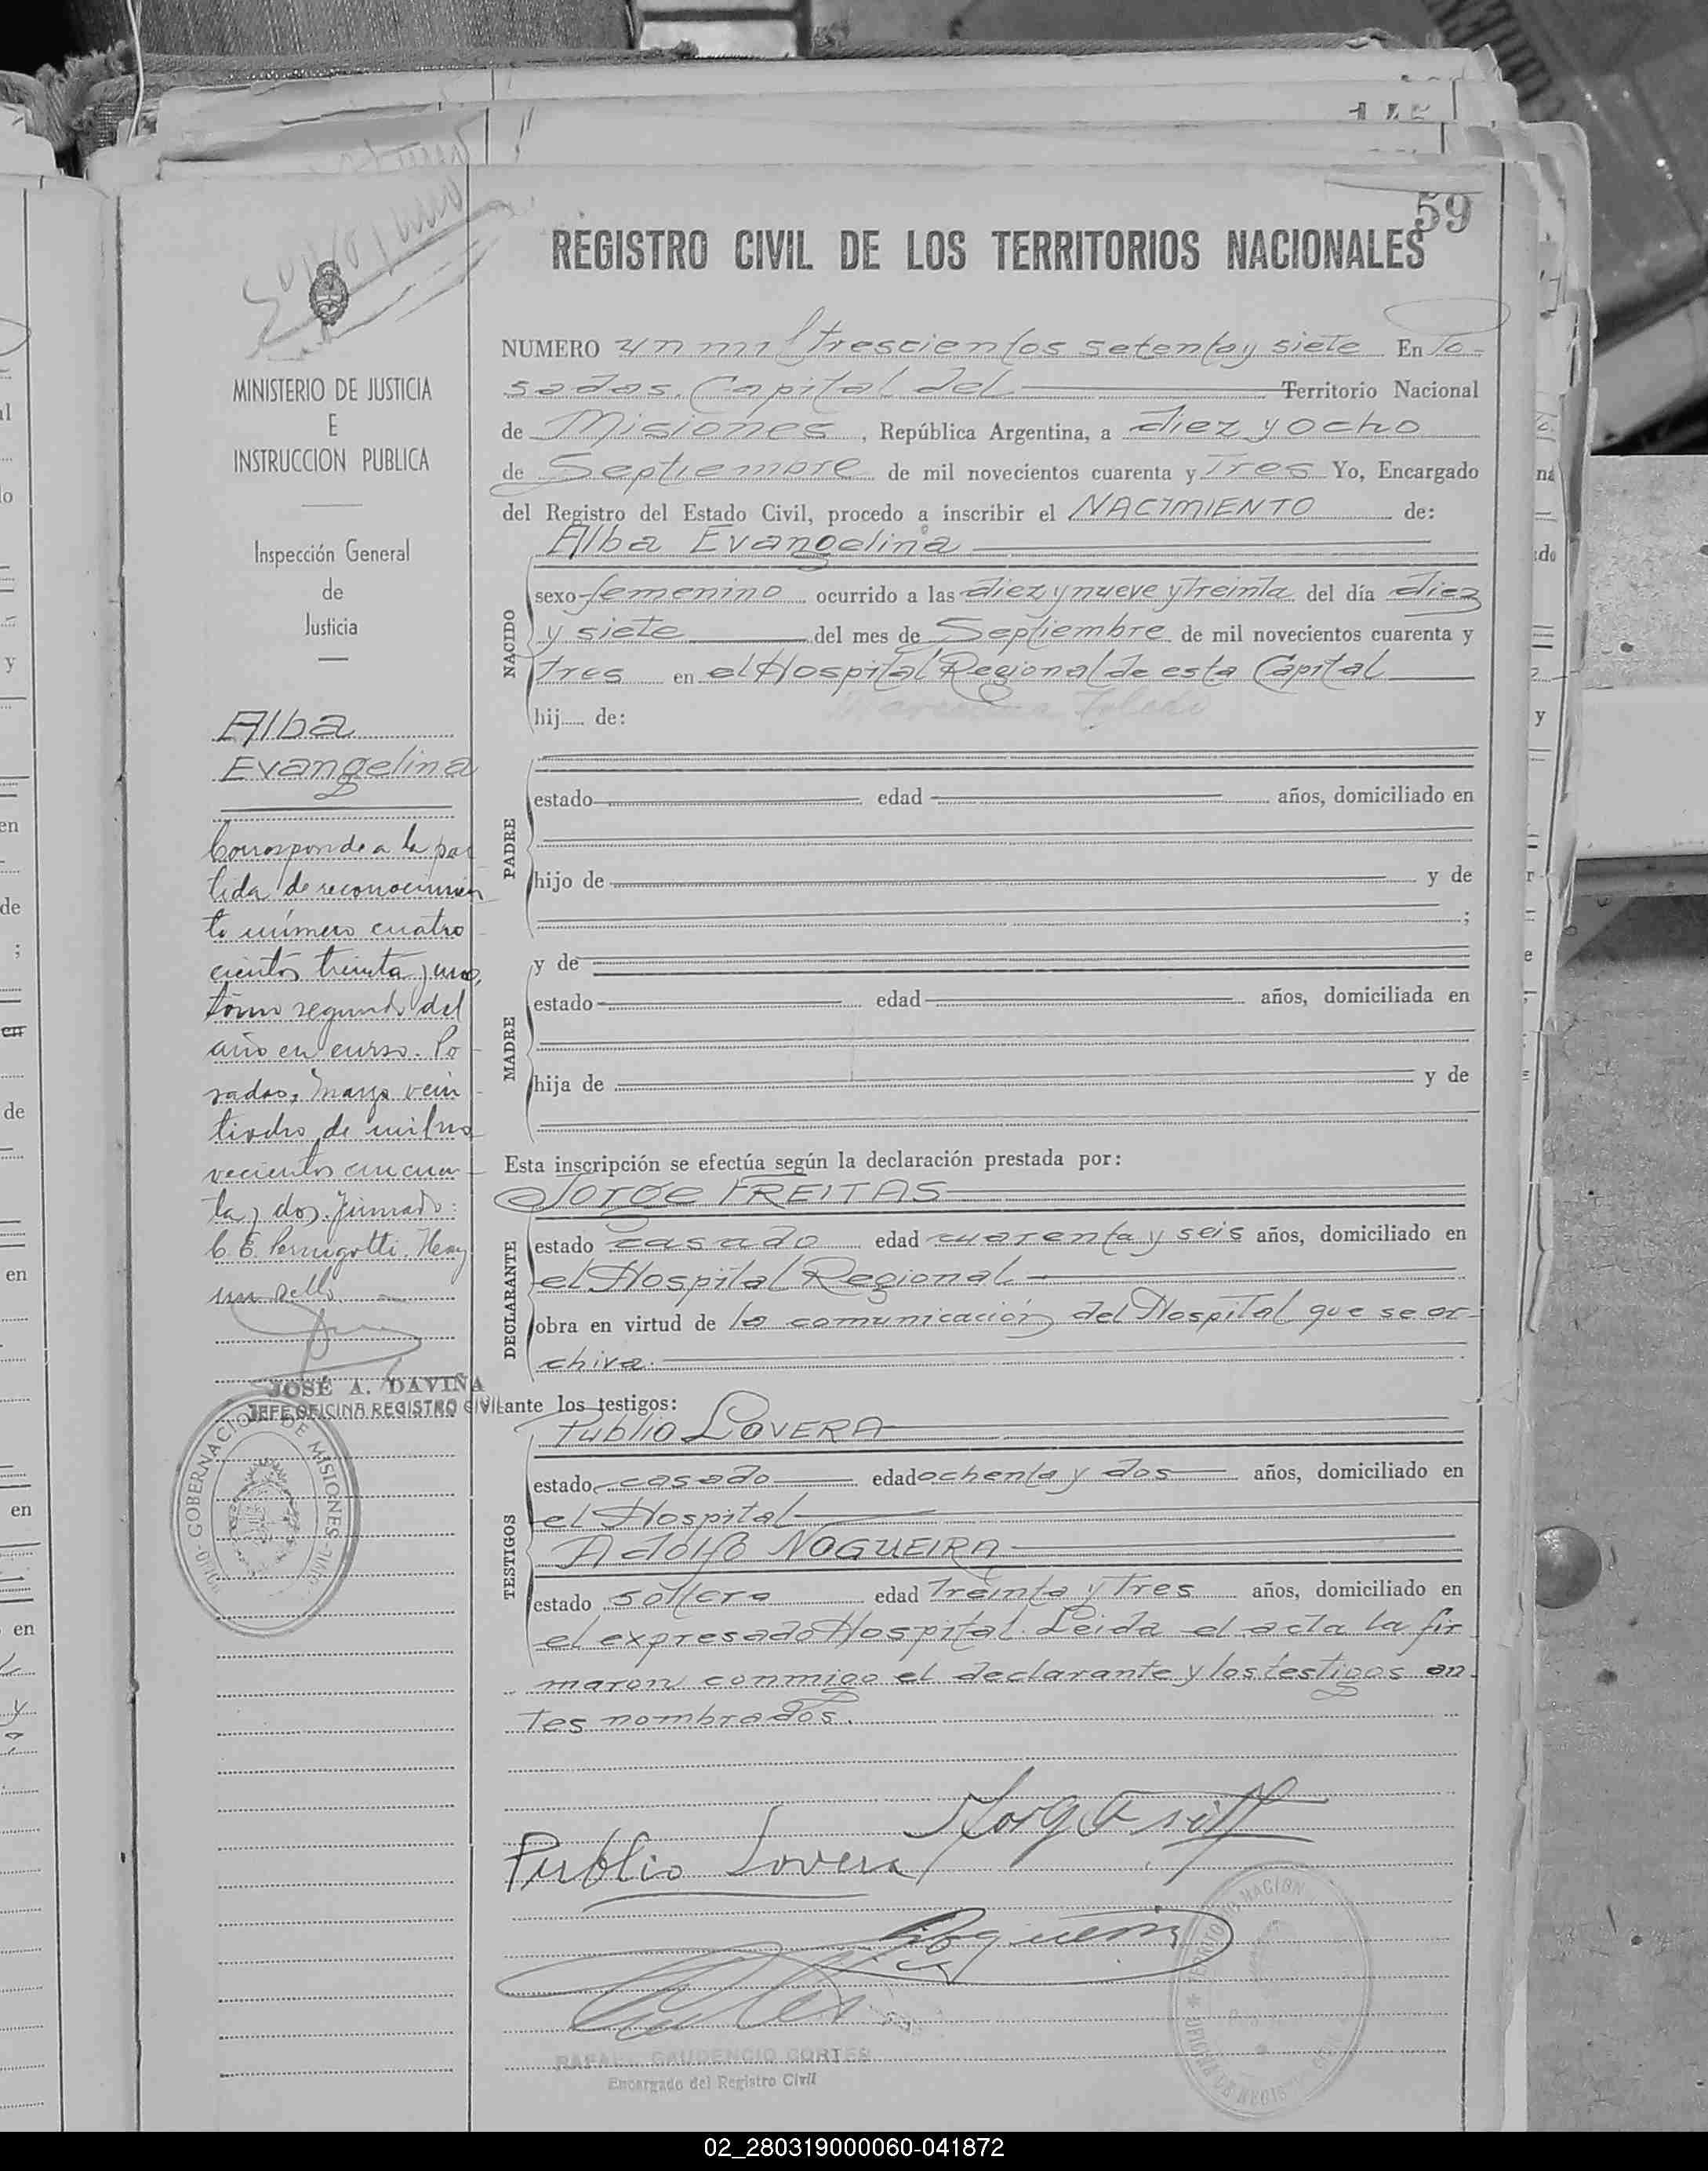 59
REGISTRO CIVIL DE LOS TERRITORIOS NACIONALES
NUMERO un mil trescientos setenta y siete En Po-
sadas, Capital del Territorio Nacional
de Misiones, República Argentina, a diez y ocho
de Septiembre de mil novecientos cuarenta y Tres Yo, Encargado
del Registro del Estado Civil, procedo a inscribir el NACIMIENTO de:
Alba Evangelina
NACIDO
sexo femenino ocurrido a las diez y nueve y treinta del día diez
y siete del mes de Septiembre de mil novecientos cuarenta y
tres en el Hospital Regional de esta Capital
hij de:
PADRE
estado edad años, domiciliado en
hijo de y de
;
MADRE
y de
estado edad años, domiciliada en
hija de y de
Esta inscripción se efectúa según la declaración prestada por:
Jorge FREITAS
DECLARANTE
estado casado edad cuarenta y seis años, domiciliado en
el Hospital Regional
obra en virtud de la comunicación del Hospital que se ar-
chiva.
ante los testigos:
Publio LOVERA
TESTIGOS
estado casado edad ochenta y dos años, domiciliado en
el Hospital
Adolfo NOGUEIRA
estado soltero edad treinta y tres años, domiciliado en
el expresado Hospital. Leida el acta la fir
maron conmigo el declarante y los testigos an-
tes nombrados.
Publio Lovera
Nogueira
RAFAEL GAUDENCIO CORTES
Encargado del Registro Civil
MINISTERIO DE JUSTICIA
E
INSTRUCCION PUBLICA
Inspección General
de
Justicia
Alba
Evangelina
Corresponde a la par
tida de reconocimien
to número cuatro
cientos treinta y uno,
tomo segundo del
año en curso. Po
sadas, marzo vein
ticuatro de mil no
vecientos cincuen
ta y dos. Firmado:
C. E. Pernigotti. Hay
un sello
JOSÉ A. DAVIÑA
JEFE OFICINA REGISTRO CIVIL
GOBERNACION DE MISIONES
02_280319000060-041872